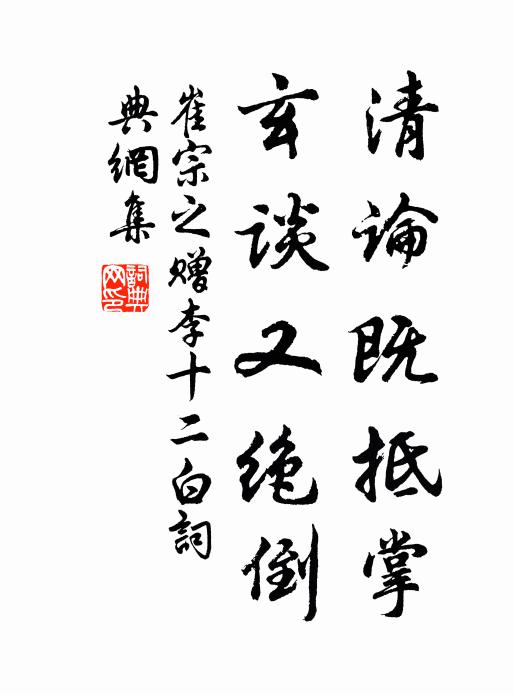 清論既抵掌
玄談又絶倒
崔宗之贈李十二白詞
典網集
詞典
网印